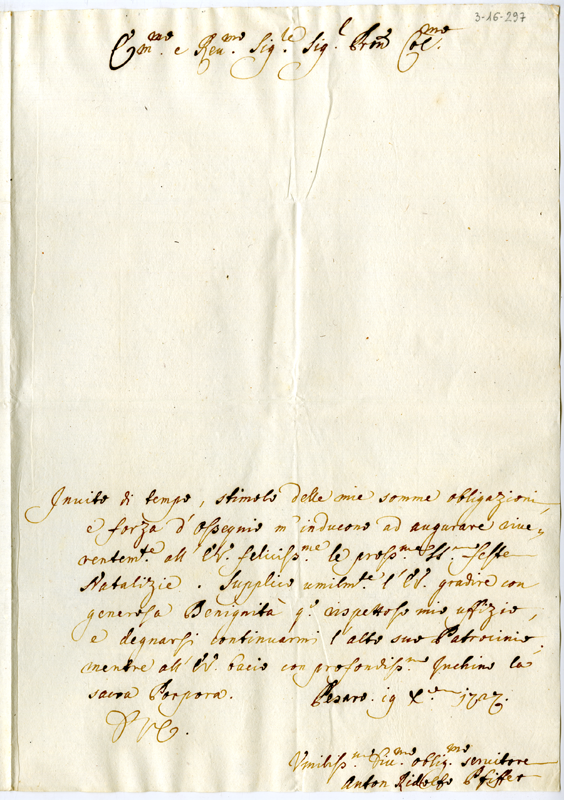 3-16-297
Em.mo e Reu.mo Sig.re Sig.r Pron Col.mo
Inuito di tempo, stimolo delle mie somme obligazioni,
e forza d'ossequio m'inducono ad augurare riue-
rentem.te all'E.V. feliciss.me le pross.me Feste
Natalizie. Supplico umilm.te l'E.V. gradire con
generosa Benignità q.o rispettoso mio uffizio,
e degnarsi continuarmi l'alto suo Patrocinio,
mentre all'E.V. bacio con profondiss.mo Inchino la
sacra Porpora. Pesaro. 19 X.bre 1727.
D.V.E.
Vmiliss.mo Diu.mo oblig.mo seruitore
Anton Ridolfo Pfiffer